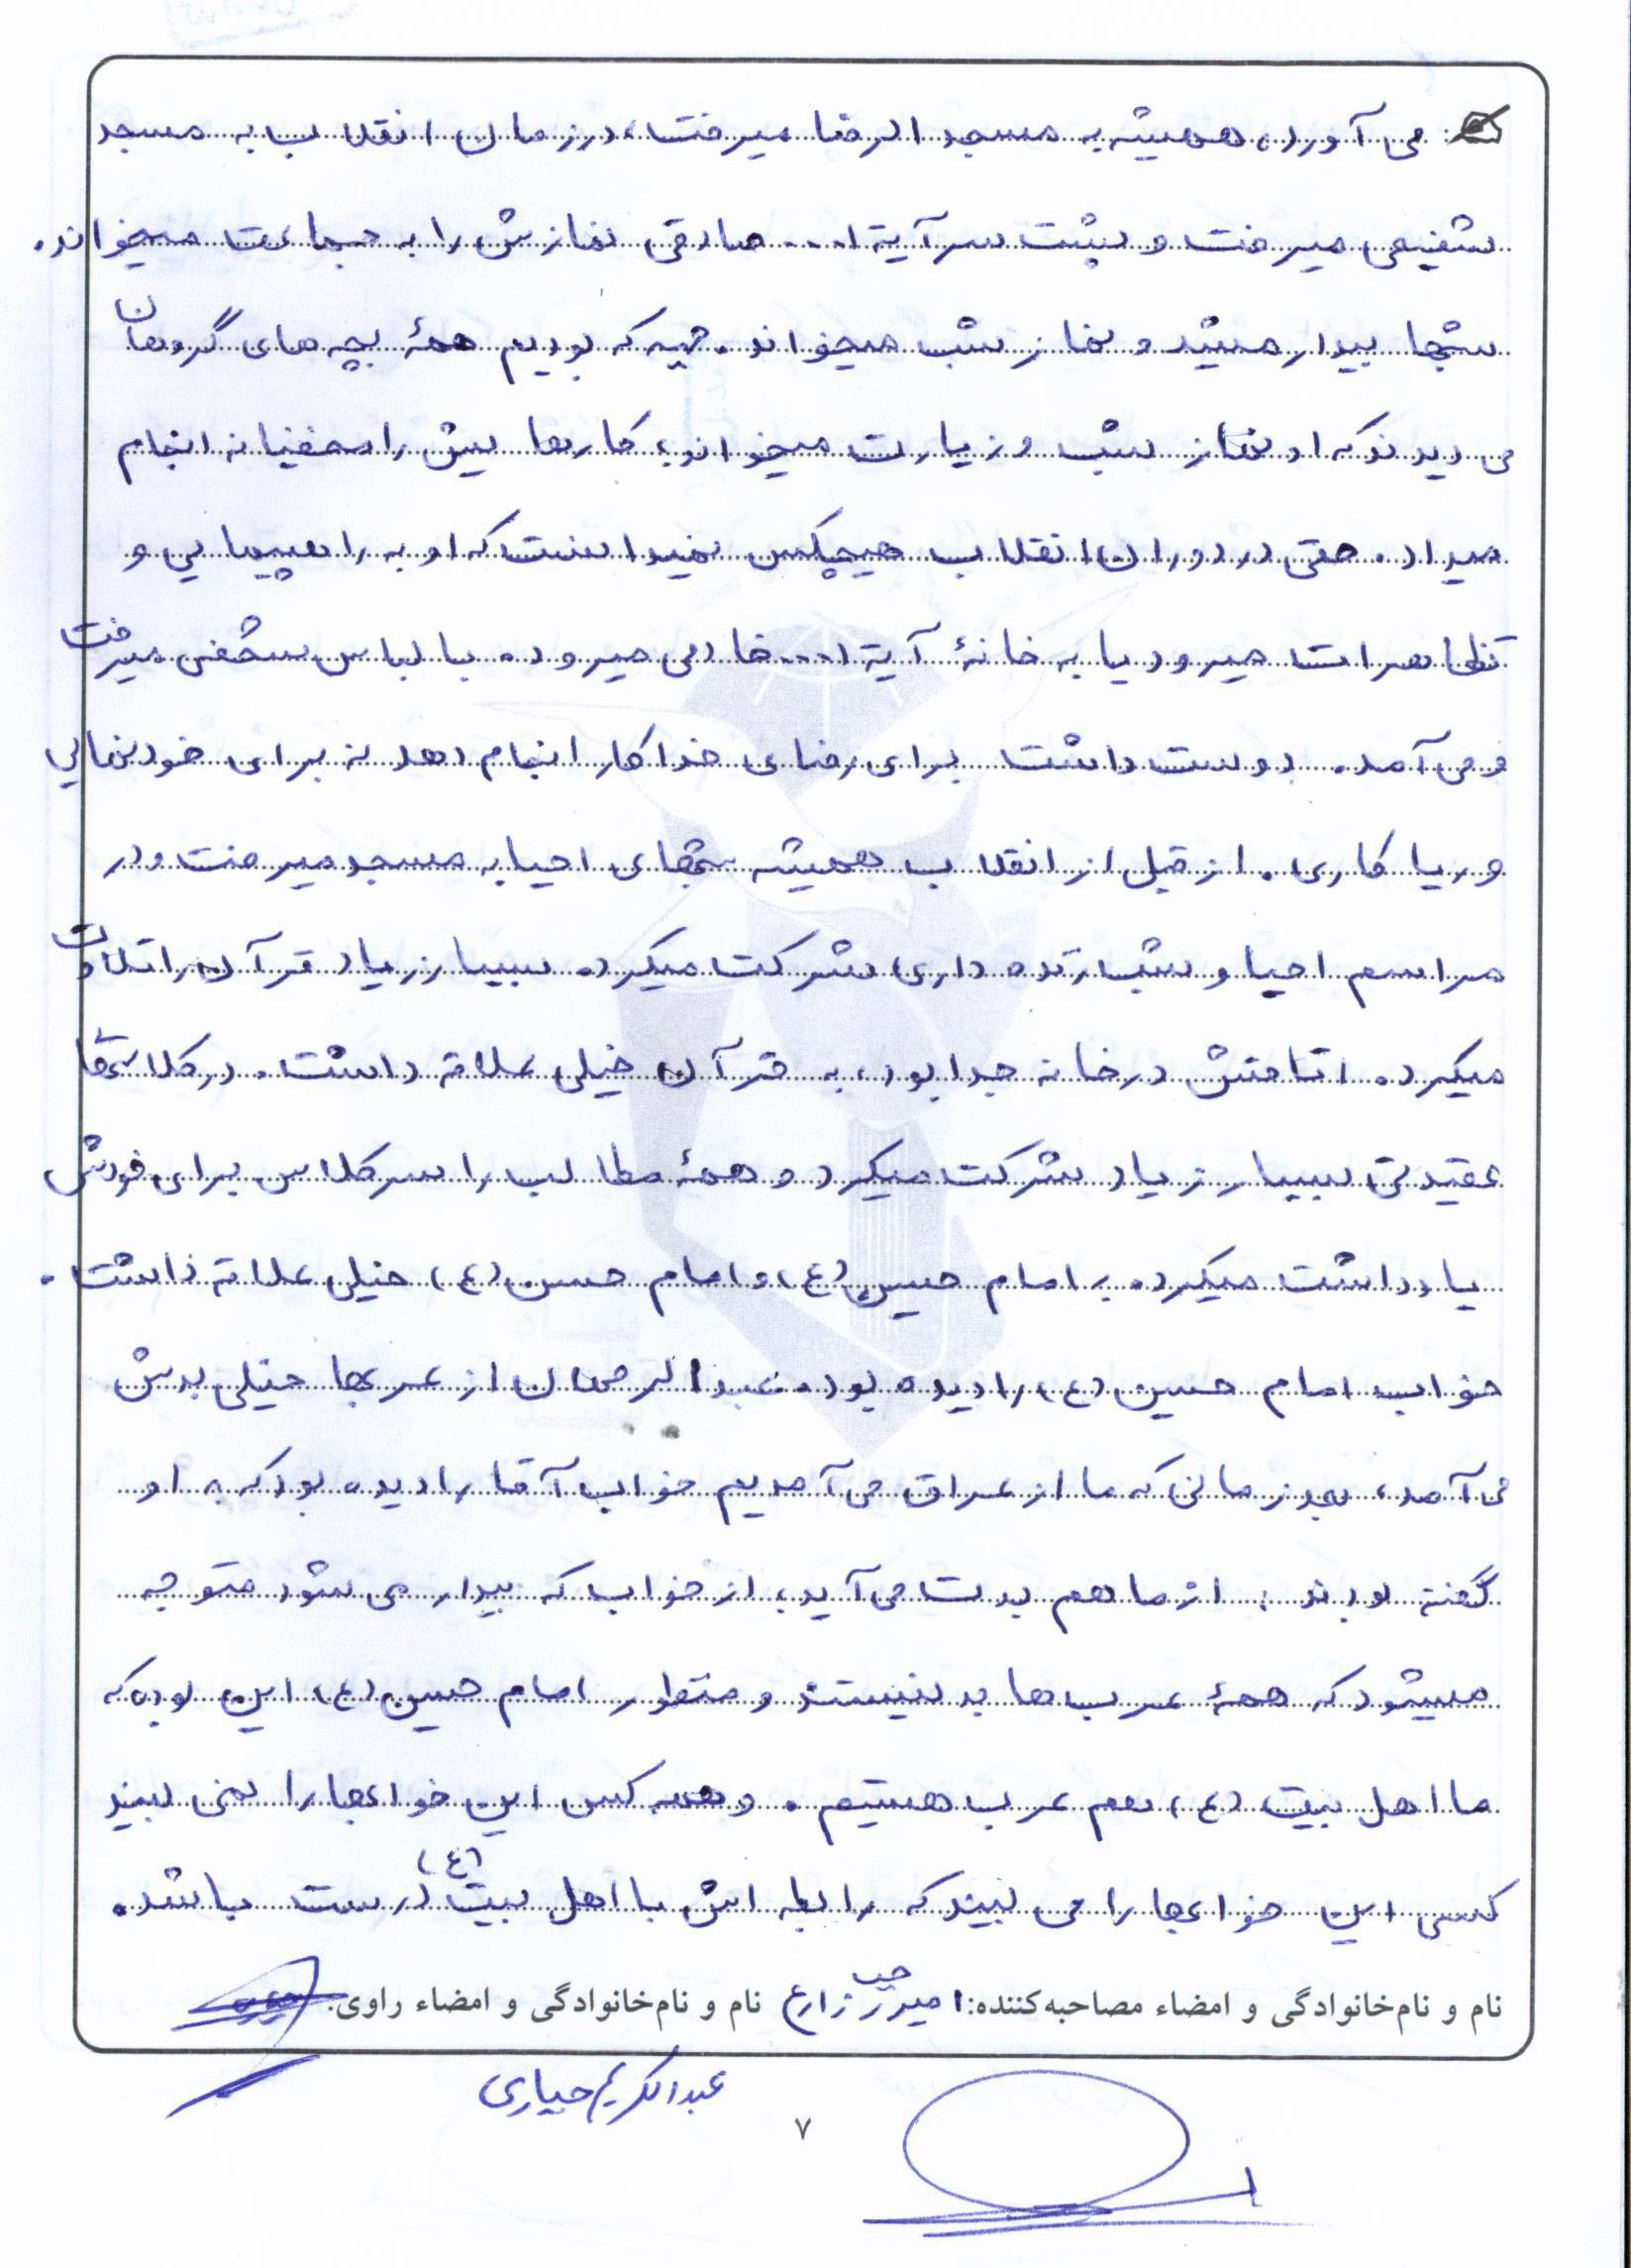 می آورد، همیشه به مسجد الرضا میرفت، در زمان انقلاب به مسجد
شفیعی میرفت و پشت سر آیة ا... صادقی نمازش را به جماعت میخواند.
شبها بیدار میشد و نماز شب میخواند. جبهه که بودیم همهٔ بچه های گروهان
می دیدند که او نماز شب و زیارت میخواند، کارهایش را مخفیانه انجام
میداد. حتی در دوران انقلاب هیچکس نمیدانست که او به راهپیمایی و
تظاهرات میرود یا به خانهٔ آیة ا... خادمی میرود. با لباس شخصی میرفت
و می آمد. دوست داشت برای رضای خدا کار انجام دهد نه برای خودنمایی
و ریا کاری. از قبل از انقلاب همیشه شبهای احیا به مسجد میرفت و در
مراسم احیا و شب زنده داری شرکت میکرد. بسیار زیاد قرآن را تلاوت
میکرد. اتاقش در خانه جدا بود، به قرآن خیلی علاقه داشت. در کلاسها
عقیدتی بسیار زیاد شرکت میکرد و همهٔ مطالب را سر کلاس برای خودش
یادداشت میکرد. به امام حسین (ع) و امام حسن (ع) خیلی علاقه داشت.
خواب امام حسین (ع) را دیده بود. عبدالرحمان از عربها خیلی بدش
می آمد، بعد زمانی که ما از عراق می آمدیم خواب آقا را دیده بود که به او
گفته بودند: از ما هم بدت می آید، از خواب که بیدار می شود متوجه
میشود که همهٔ عرب ها بد نیستند و منظور امام حسین (ع) این بوده که
ما اهل بیت (ع) هم عرب هستیم. و همه کس این خوابها را نمی بیند
کسی این خوابها را می بیند که رابطه اش با اهل بیت (ع) درست باشد.
نام و نام‌خانوادگی و امضاء مصاحبه‌کننده: امیر رجب زارع نام و نام‌خانوادگی و امضاء راوی:
عبدالکریم حیاری
۷